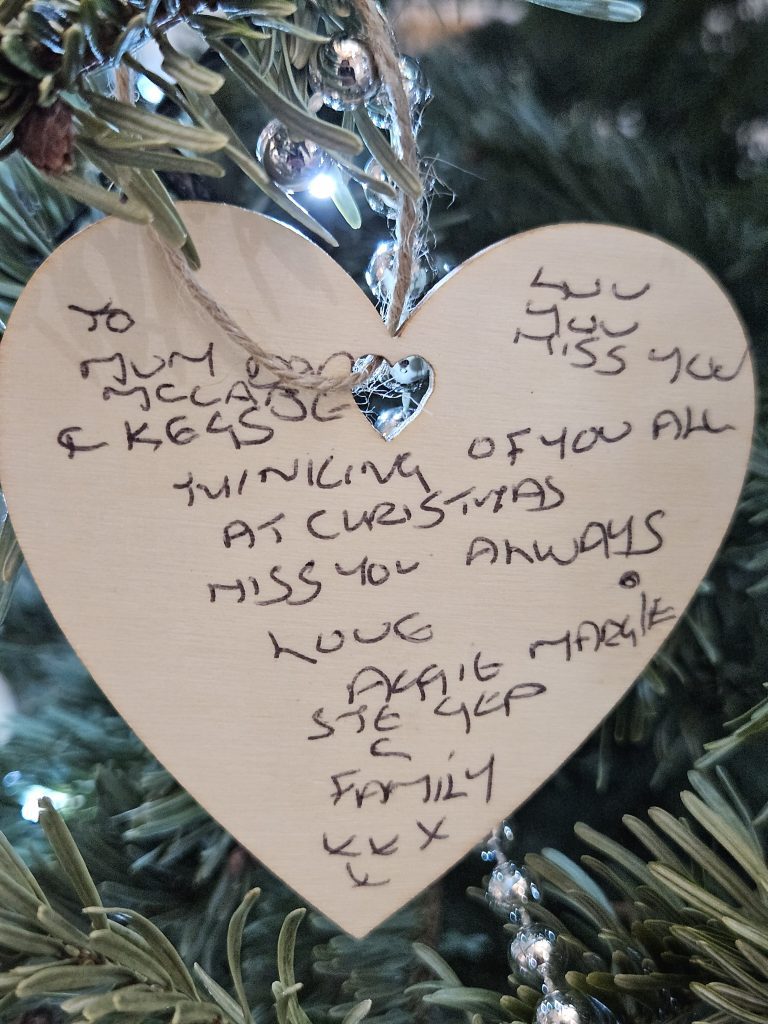 TO
MUM DAD
MCCABE
& KEGS
LUV
YOU
MISS YOU
THINKING OF YOU ALL
AT CHRISTMAS
MISS YOU ALWAYS
LOVE
MARGIE
STE GED
&
FAMILY
x x x
x